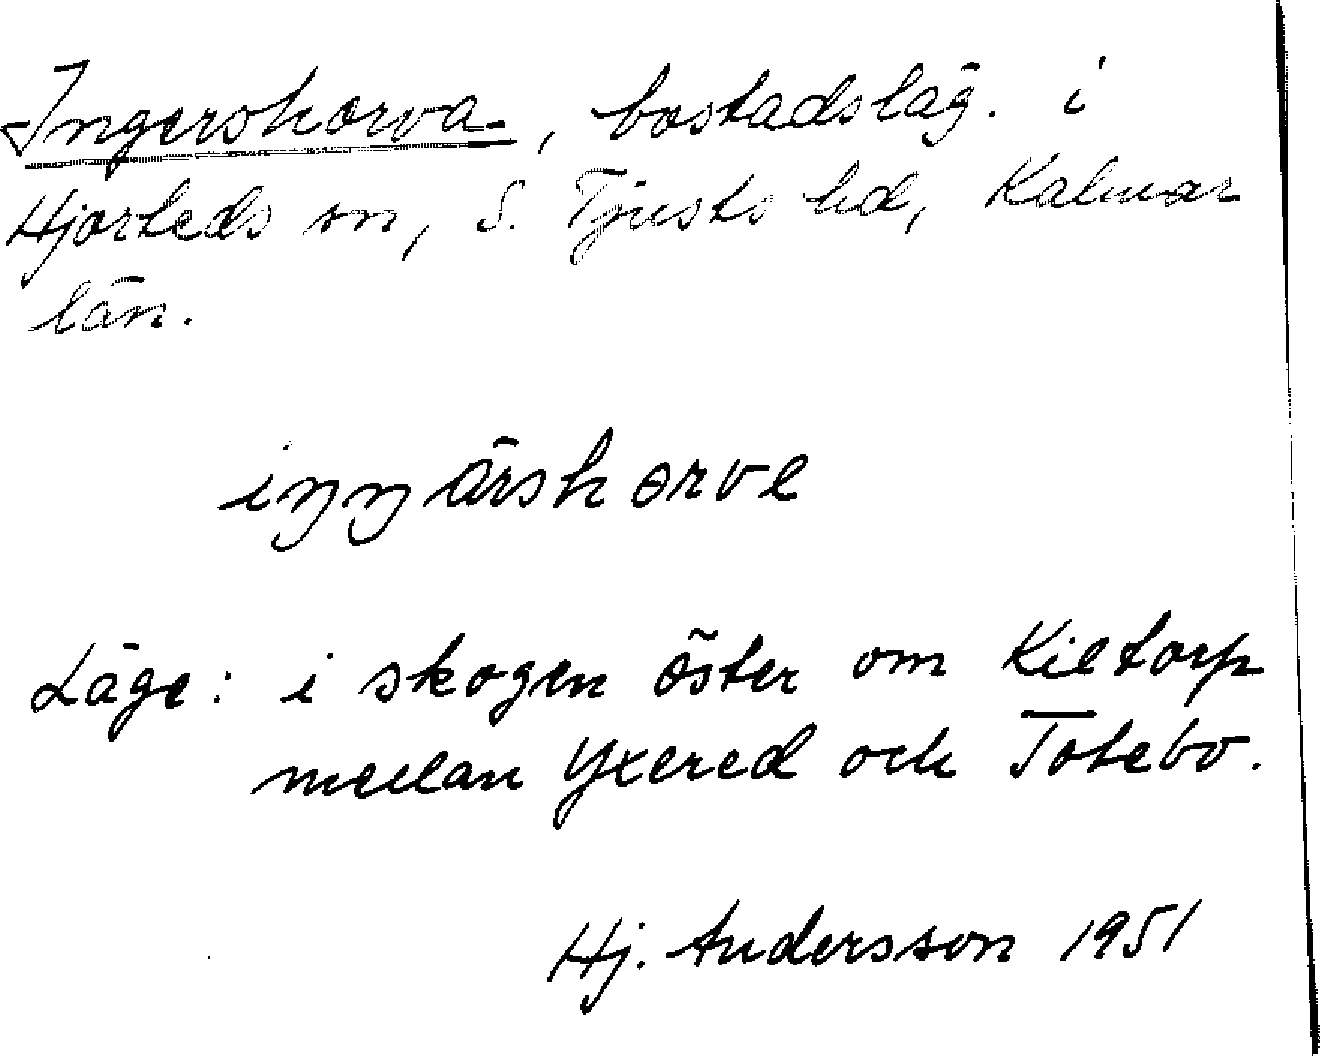 Ingerskorva, bostadsläg. i
Hjorteds sn, S. Tjusts hd, Kalmar
län.
iŋŋärskorve
Läge: i skogen öster om Kieltorp
mellan Yxered och Totebo.
Hj. Andersson 1951